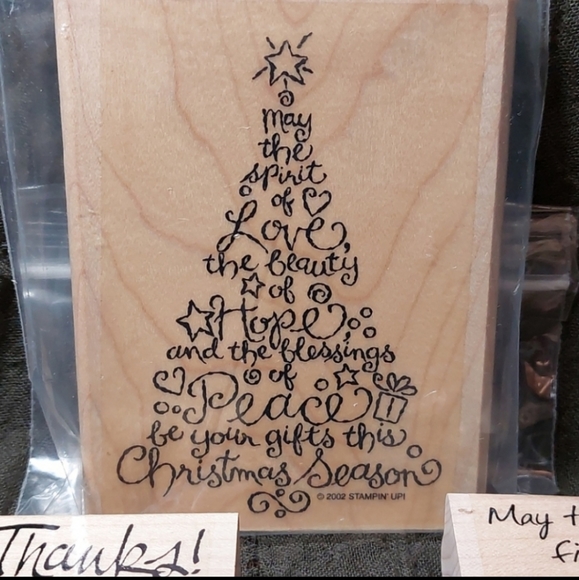 May
the
spirit
of
Love,
the beauty
of
Hope
and the blessings
of
Peace
be your gifts this
Christmas Season
© 2002 STAMPIN' UP!
Thanks!
May t
fi